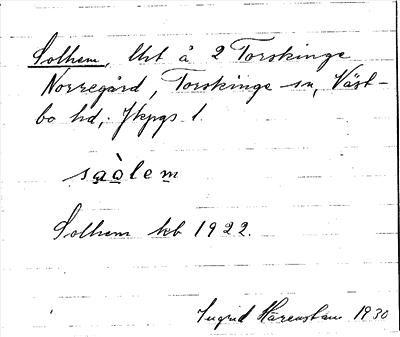 Solhem, lht å 2 Torskinge
Norregård, Torskinge sn, Väst-
bo hd, Jkpgs l.
saòlem
Solhem kb 1922.
Ingrid Härenstam 1930